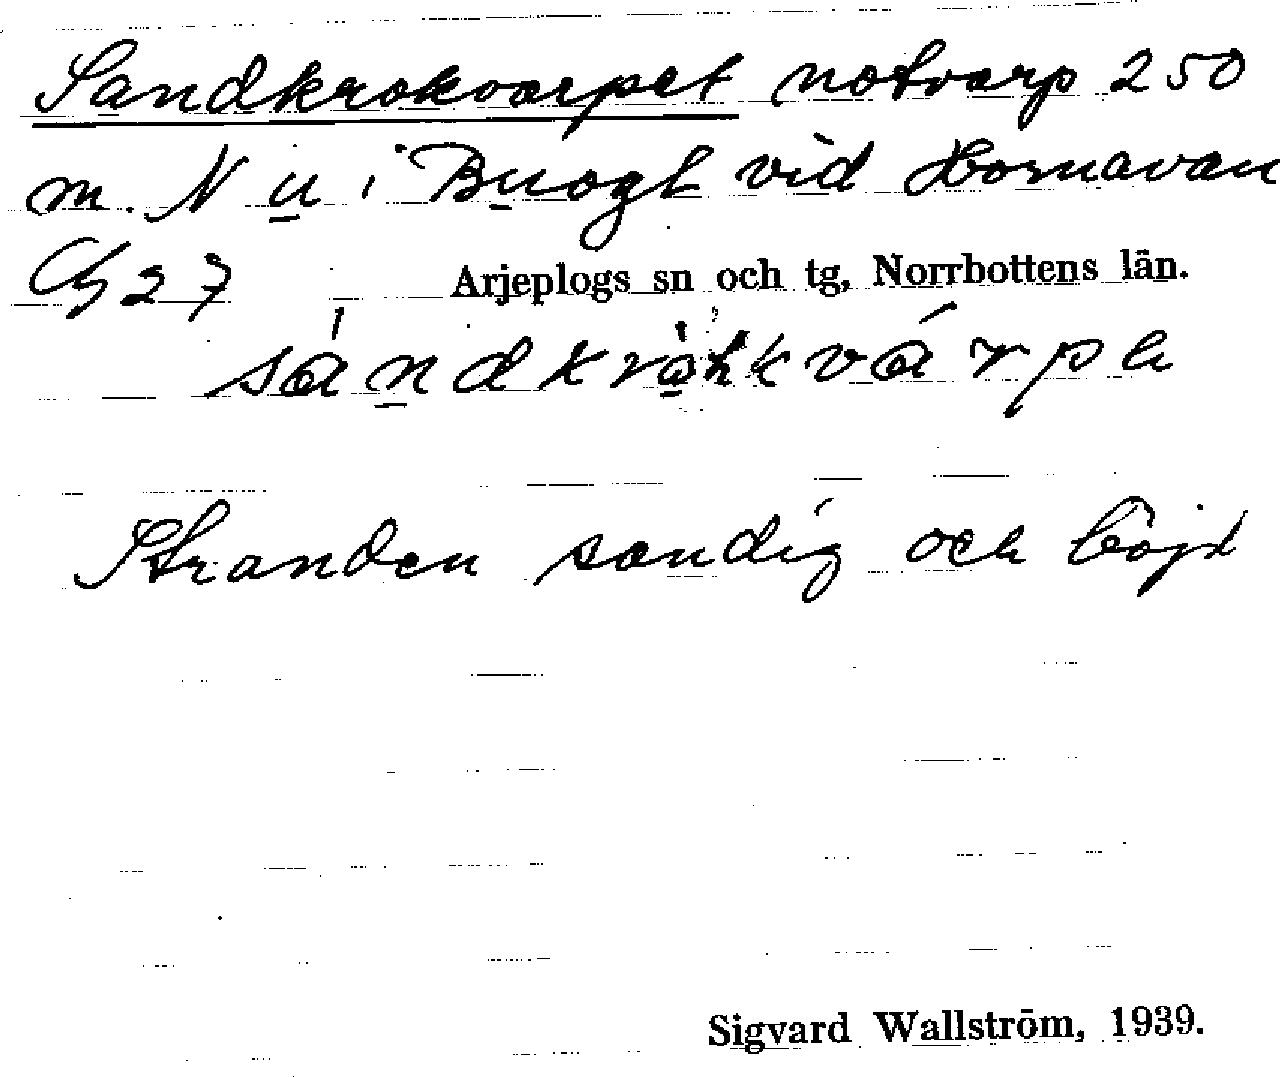 Sandkrokvarpet notvarp 250
m. N u i Buogt vid Hornavan
27 Arjeplogs sn och tg, Norrbottens län.
Stranden sandig och böjd
Sigvard Wallström, 1939.